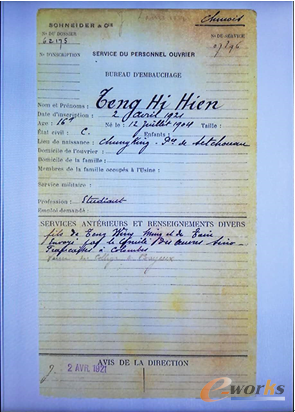 SCHNEIDER & Cie
Chinois
No DU DOSSIER
No DE SERVICE
62175
07396
No D'INSCRIPTION
SERVICE DU PERSONNEL OUVRIER
BUREAU D'EMBAUCHAGE
Nom et Prénoms : Teng Hi Hien
Date d'inscription : 2 avril 1921
Age : 16 Né le : 12 juillet 1904 Taille :
État civil : C. Enfants :
Lieu de naissance : Chung King - de Setchouan
Domicile de l'ouvrier :
Domicile de la famille :
Membres de la famille occupés à l'Usine :
Service militaire :
Profession : Etudiant
Emploi demandé :
SERVICES ANTÉRIEURS ET RENSEIGNEMENTS DIVERS
fils de Teng Wen Ming et de
Envoyé par le Comité des Sino-
Françaises à Colombes
Collège de
AVIS DE LA DIRECTION
2 AVR 1921
e-works